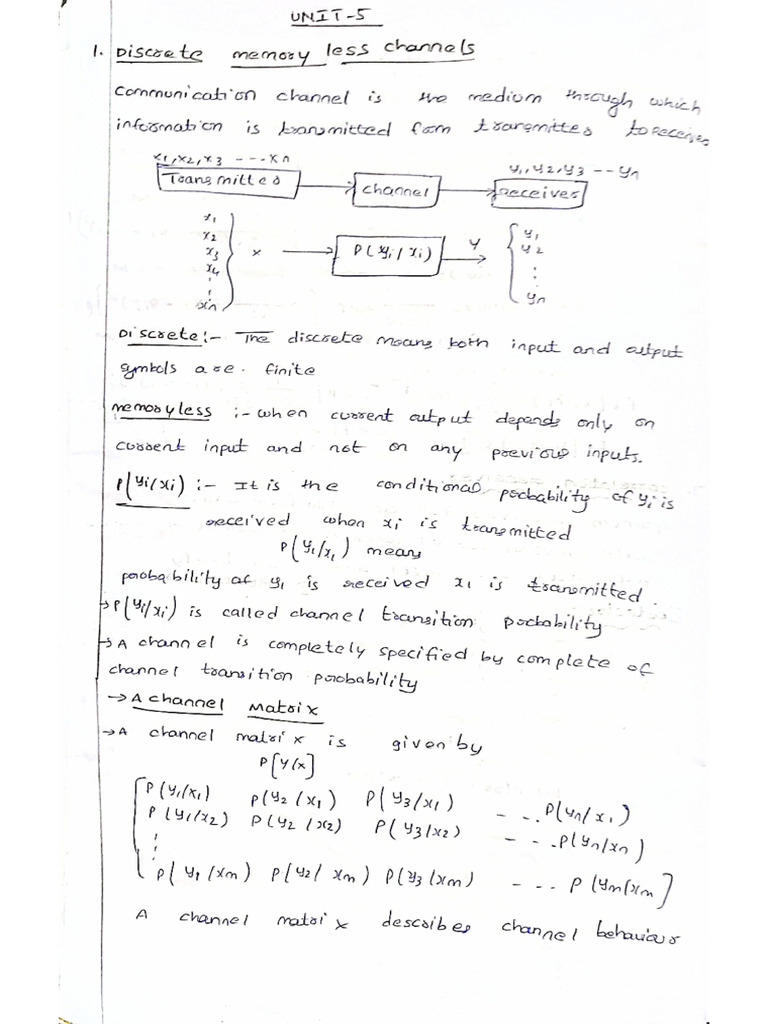 UNIT-5
1. Discrete memory less channels
Communication channel is the medium through which
information is transmitted from transmitter to receiver
x1, x2, x3 ---- xn
y1, y2, y3 -- yn
Transmitter
channel
receiver
x1
x2
x3
x4
⋮
xn
x
P(yi/xi)
Y
y1
y2
⋮
yn
Discrete:- The discrete means both input and output
symbols are. finite
memoryless :- when current output depends only on
current input and not on any previous inputs.
P(yi/xi) :- It is the conditional probability of yi is
received when xi is transmitted
P(y1/x1) means
probability of y1 is received x1 is transmitted.
→ P(yi/xi) is called channel transition probability
→ A channel is completely specified by complete of
channel transition probability
→ A channel Matrix
→ A channel matrix is given by
P[Y/X]
[P(y1/x1) P(y2/x1) P(y3/x1) - -.. P(yn/x1)
P(y1/x2) P(y2/x2) P(y3/x2) - - .. P(yn/xn)
⋮
P(y1/xm) P(y2/xm) P(y3/xm) - -.. P(ym/xm]
A channel matrix describes channel behaviour